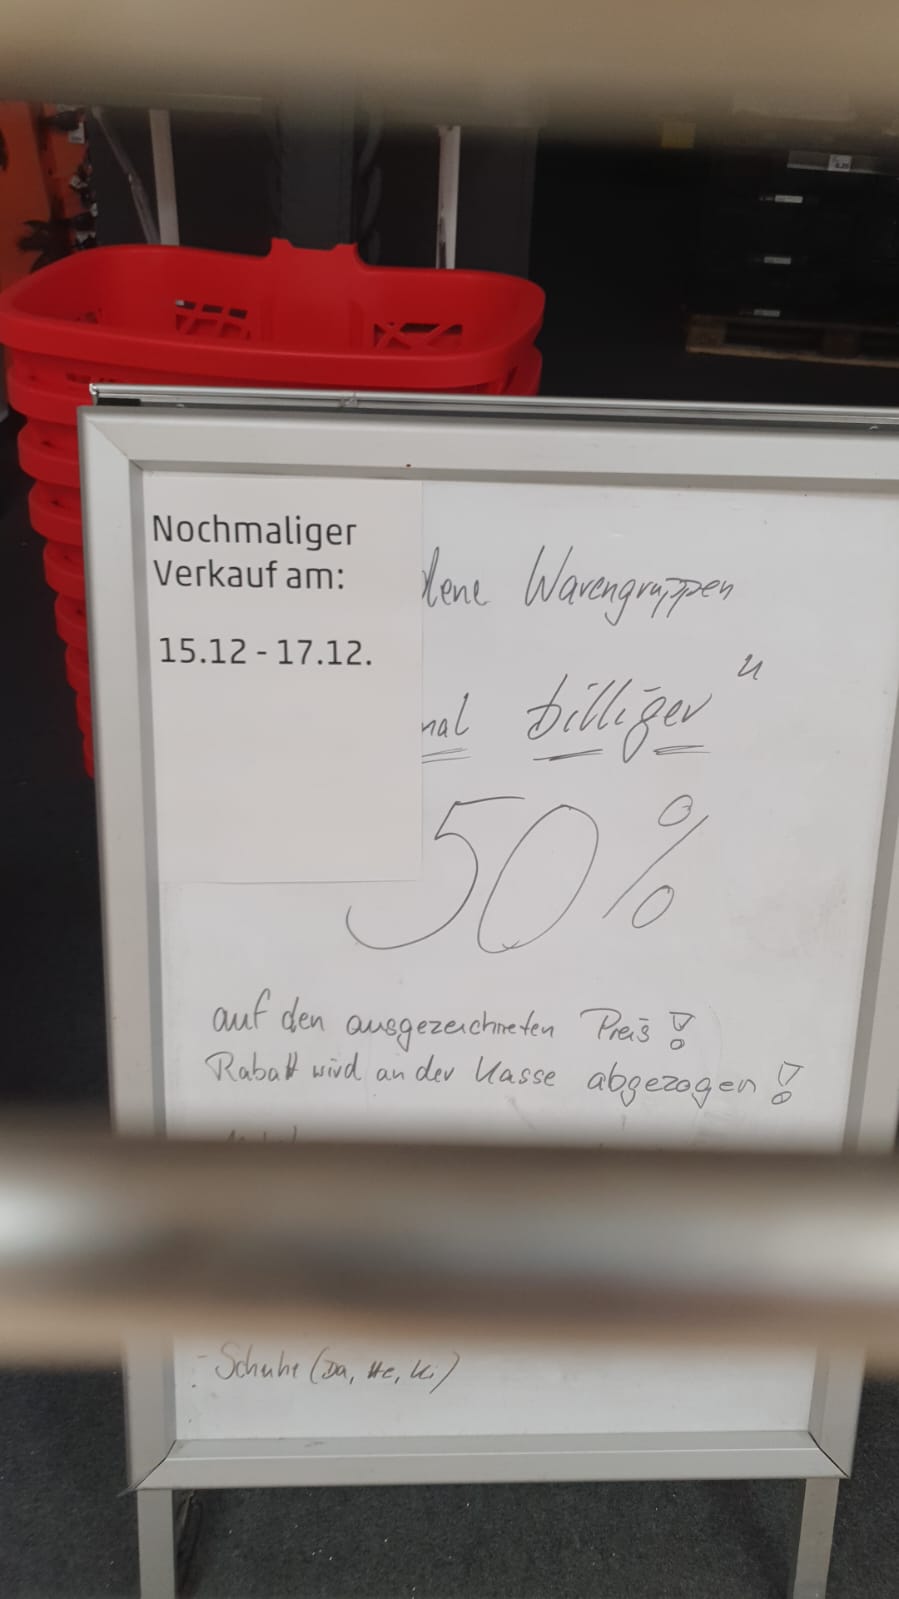 Nochmaliger
Verkauf am:
15.12 - 17.12.
Warengruppen
billiger"
50%
auf den ausgezeichneten Preis!
Rabatt wird an der Kasse abgezogen!
- Schuhe (Da, He, Ki)